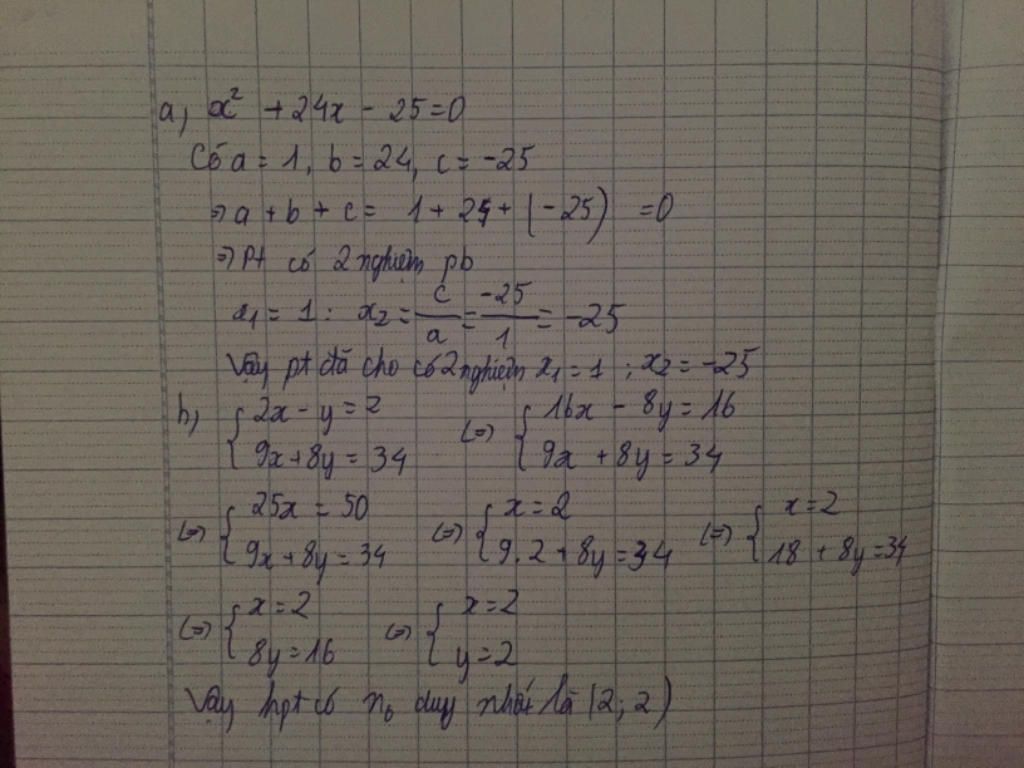 a, x² + 24x - 25 = 0
Có a = 1, b = 24, c = -25
⇒ a + b + c = 1 + 24 + (-25) = 0
⇒ Pt có 2 nghiệm pb
x₁ = 1 ; x₂ = c/a = -25/1 = -25
Vậy pt đã cho có 2 nghiệm x₁ = 1 ; x₂ = -25
b, { 2x - y = 2 (=) { 16x - 8y = 16
9x + 8y = 34 9x + 8y = 34
(=) { 25x = 50 (=) { x = 2 (=) { x = 2
9x + 8y = 34 9.2 + 8y = 34 18 + 8y = 34
(=) { x = 2 (=) { x = 2
8y = 16 y = 2
Vậy hpt có n₀ duy nhất là (2; 2)